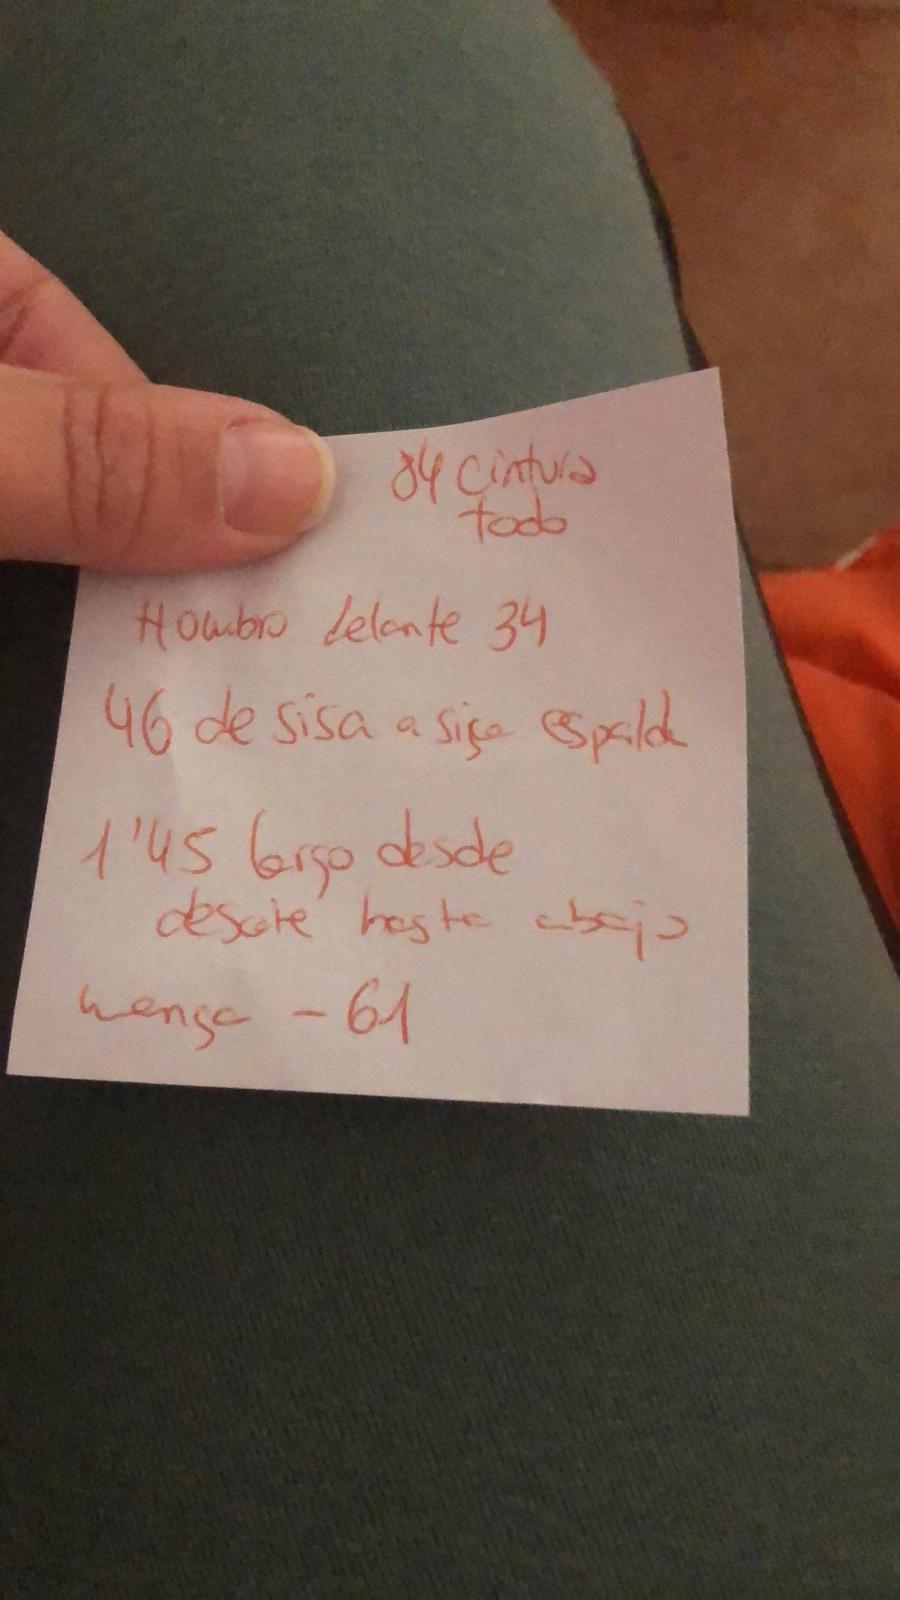 84 cintura
todo
Hombro delante 34
46 de sisa a sisa espalda
1'45 largo desde
descote hasta abajo
manga - 61